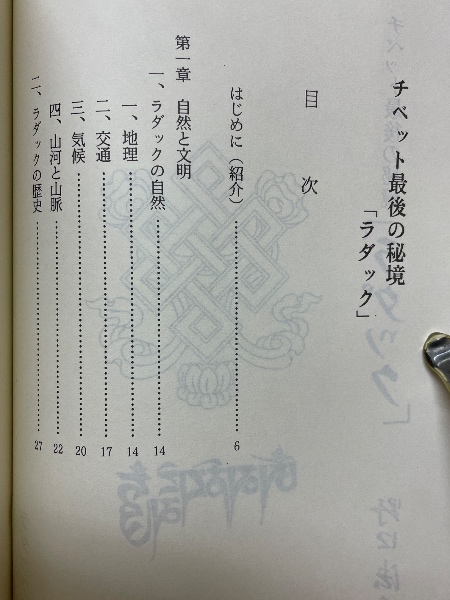 チベット最後の秘境
「ラダック」
目次
はじめに（紹介）……………………6
第一章 自然と文明
一、ラダックの自然……………………14
一、地理……………………14
二、交通……………………17
三、気候……………………20
四、山河と山脈……………………22
二、ラダックの歴史……………………27